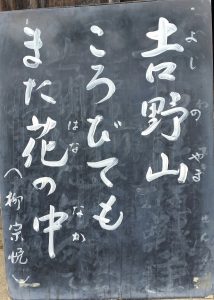 吉野山
よし の やま
ころびても
また花の中
はな なか
（柳宗悦）